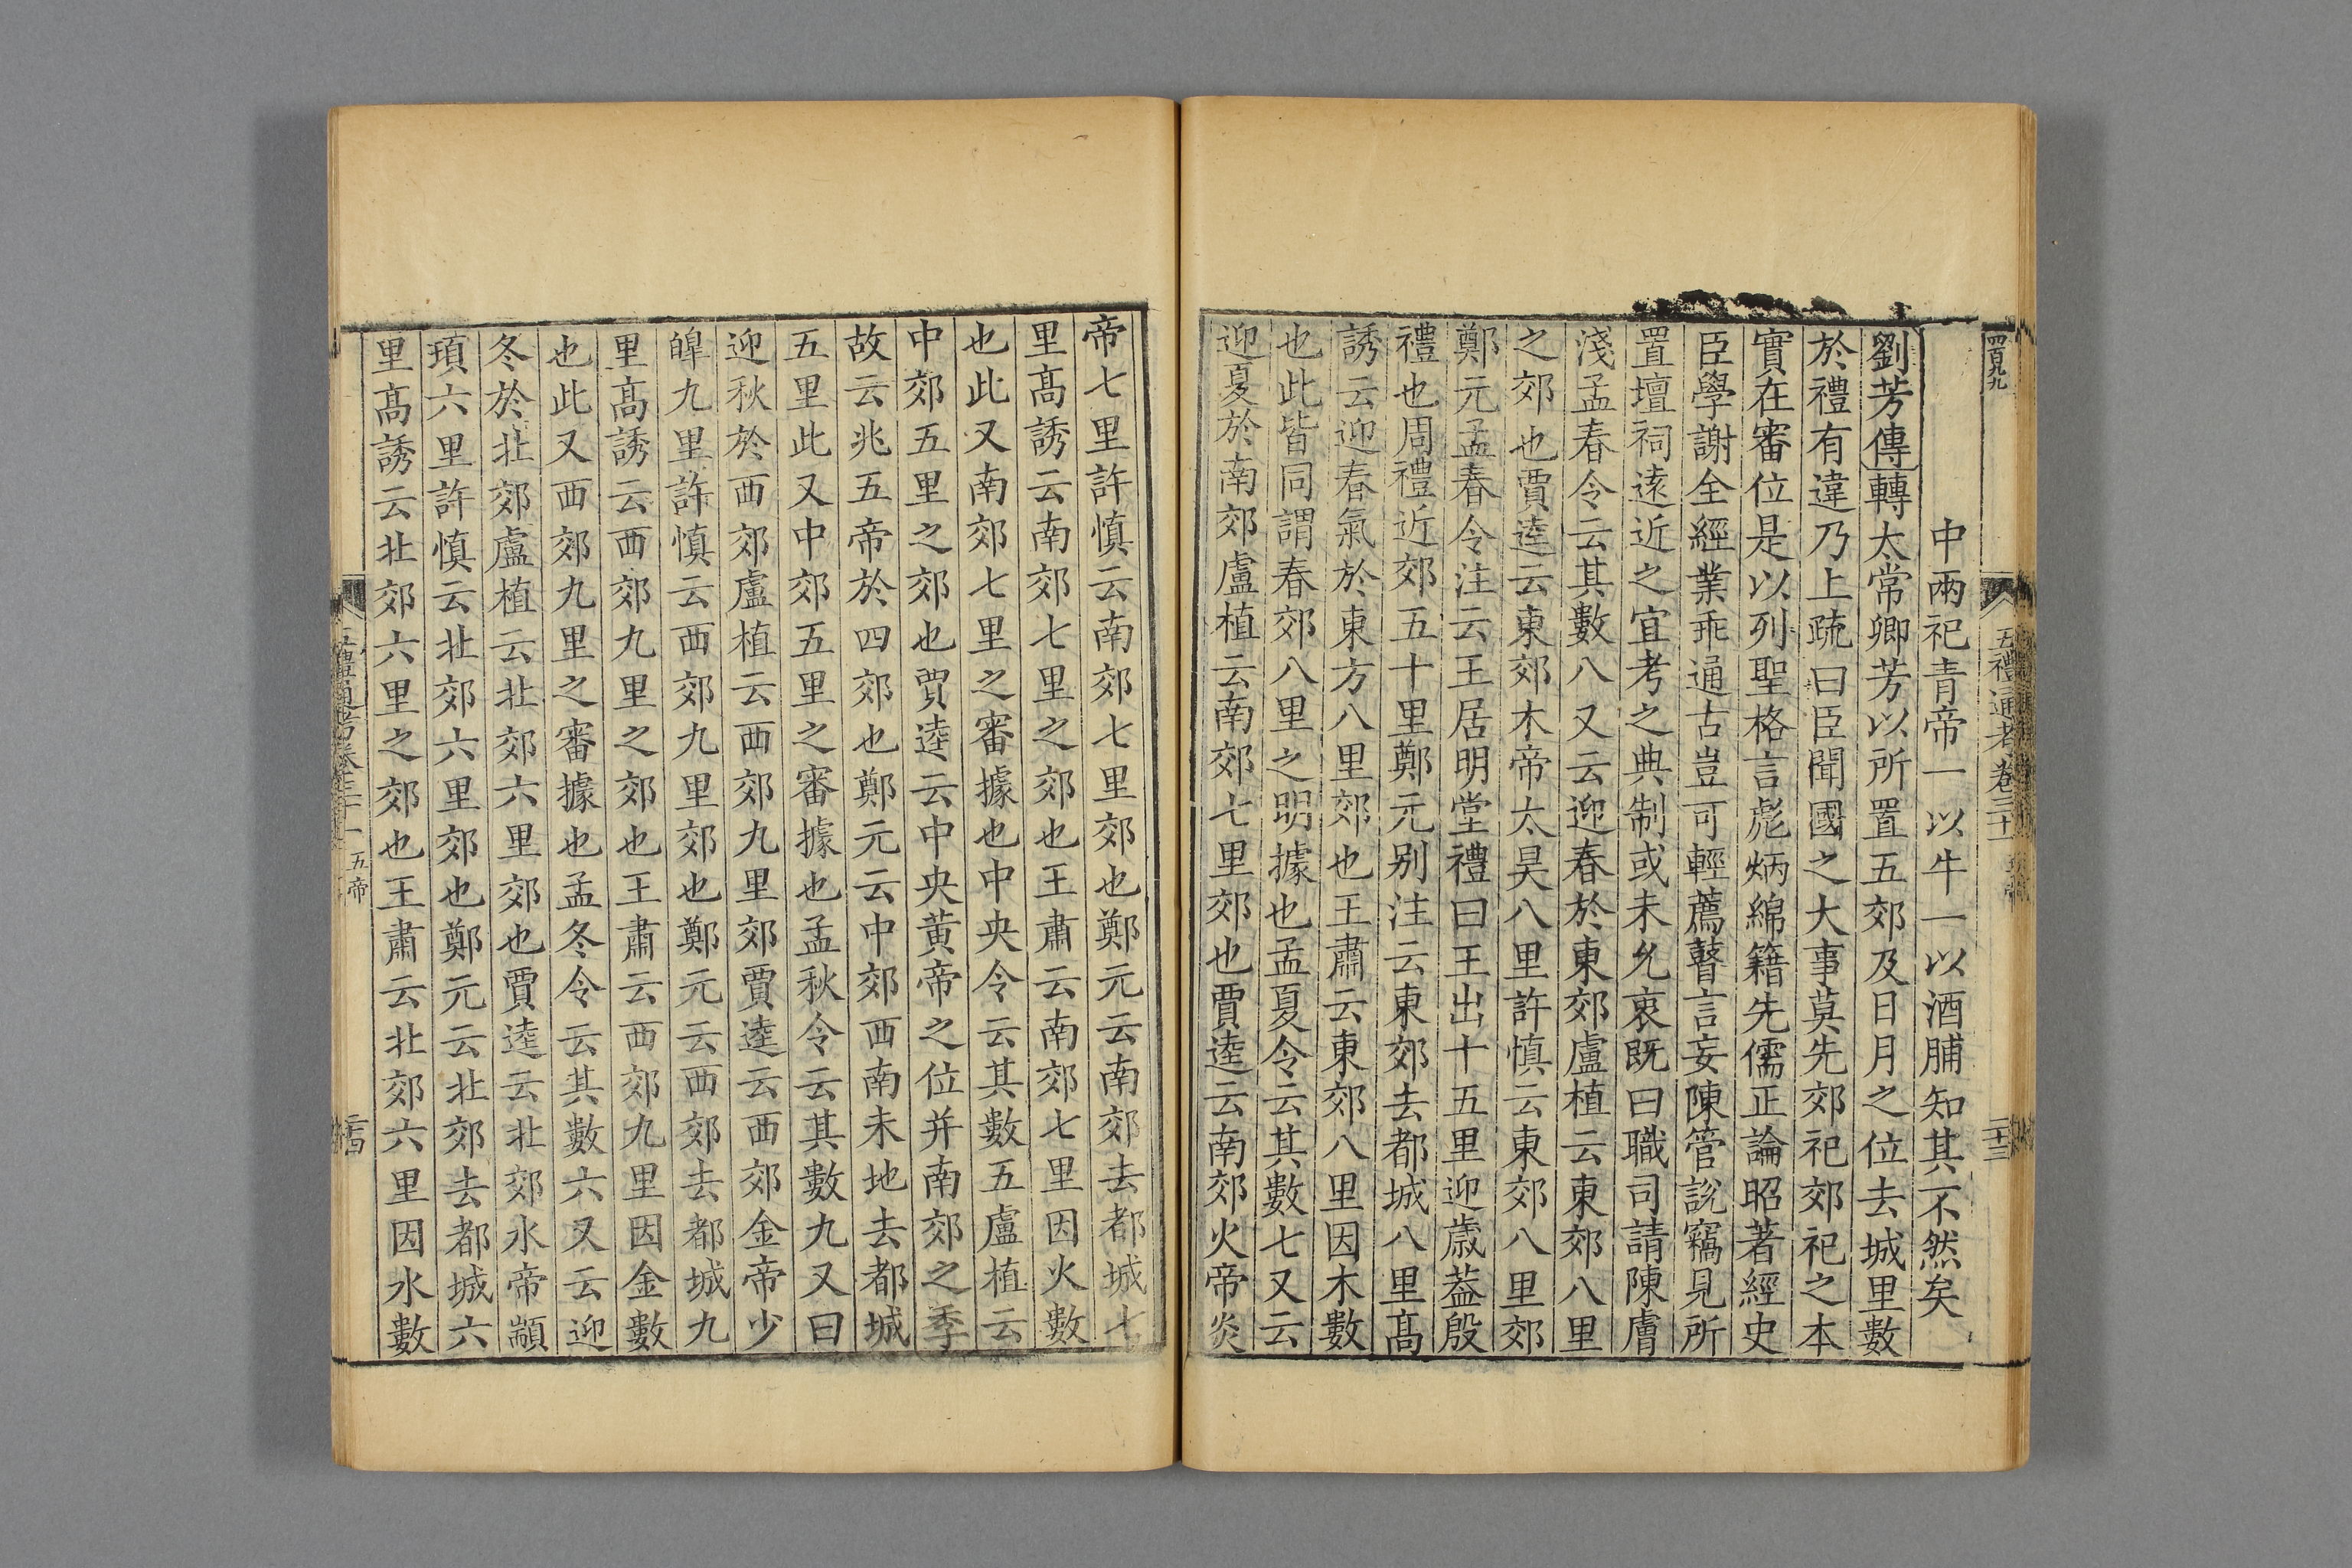 四百九
五禮通考卷三十一
二十三
中兩祀青帝一以牛一以酒脯知其不然矣
劉芳傳轉太常卿芳以所置五郊及日月之位去城里數
於禮有違乃上疏曰臣聞國之大事莫先郊祀郊祀之本
實在審位是以列聖格言彪炳綿籍先儒正論昭著經史
臣學謝全經業乖通古豈可輕薦瞽言妄陳管說竊見所
置壇祠遠近之宜考之典制或未允衷既曰職司請陳膚
淺孟春令云其數八又云迎春於東郊盧植云東郊八里
之郊也賈逵云東郊木帝太昊八里許慎云東郊八里郊
鄭元孟春令注云王居明堂禮曰王出十五里迎歲葢殷
禮也周禮近郊五十里鄭元別注云東郊去都城八里高
誘云迎春氣於東方八里郊也王肅云東郊八里因木數
也此皆同謂春郊八里之明據也孟夏令云其數七又云
迎夏於南郊盧植云南郊七里郊也賈逵云南郊火帝炎
帝七里許慎云南郊七里郊也鄭元云南郊去都城七
里高誘云南郊七里之郊也王肅云南郊七里因火數
也此又南郊七里之審據也中央令云其數五盧植云
中郊五里之郊也賈逵云中央黃帝之位并南郊之季
故云兆五帝於四郊也鄭元云中郊西南未地去都城
五里此又中郊五里之審據也孟秋令云其數九又曰
迎秋於西郊盧植云西郊九里郊賈逵云西郊金帝少
皞九里許慎云西郊九里郊也鄭元云西郊去都城九
里高誘云西郊九里之郊也王肅云西郊九里因金數
也此又西郊九里之審據也孟冬令云其數六又云迎
冬於北郊盧植云北郊六里郊也賈逵云北郊水帝顓
頊六里許慎云北郊六里郊也鄭元云北郊去都城六
里高誘云北郊六里之郊也王肅云北郊六里因水數
五禮通考卷三十一 五帝
二十四